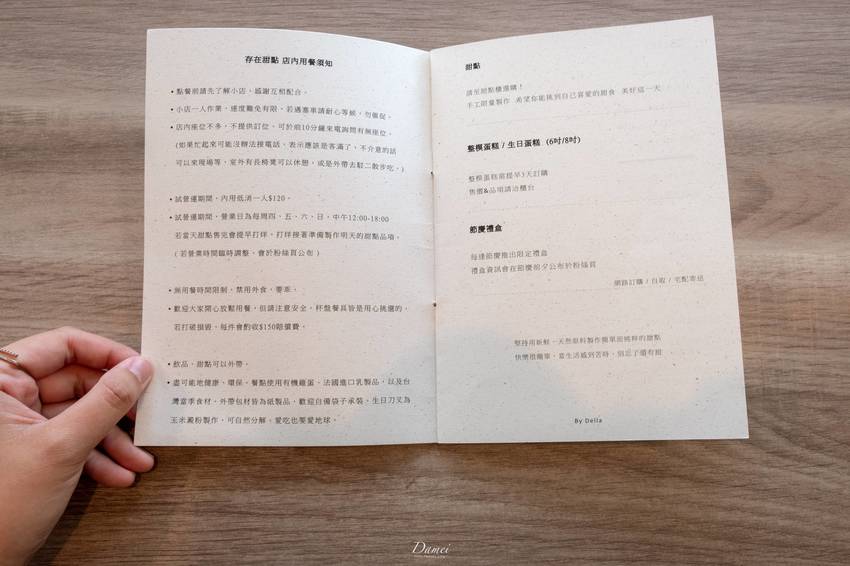 存在甜點 店內用餐須知
•點餐前請先了解小店、感謝互相配合。
•小店一人作業，速度難免有限，若遇塞車請耐心等候，勿催促。
•店內座位不多，不提供訂位，可於前10分鐘來電詢問有無座位。
(如果忙起來可能沒辦法接電話，表示應該是客滿了，不介意的話
可以來現場等，室外有長椅凳可以休憩，或是外帶去駁二散步吃。)
•試營運期間，內用低消一人$120。
•試營運期間，營業日為每周四、五、六、日，中午12:00-18:00
若當天甜點售完會提早打烊，打烊接著準備製作明天的甜點品項。
(若營業時間臨時調整、會於粉絲頁公布)
•無用餐時間限制，禁用外食，要乖。
•歡迎大家開心放鬆用餐，但請注意安全，杯盤餐具皆是用心挑選的，
若打破損毀，每件會酌收$150賠償費。
•飲品、甜點可以外帶。
•盡可能地健康、環保。餐點使用有機雞蛋、法國進口乳製品，以及台
灣當季食材。外帶包材皆為紙製品，歡迎自備袋子承裝。生日刀叉為
玉米澱粉製作，可自然分解。愛吃也要愛地球。
甜點
請至甜點櫃選購！
手工限量製作 希望你能挑到自己喜愛的甜食 美好這一天
整模蛋糕 / 生日蛋糕 (6吋/8吋)
整模蛋糕需提早3天訂購
售價&品項請洽櫃台
節慶禮盒
每逢節慶推出限定禮盒
禮盒資訊會在節慶前夕公布於粉絲頁
網路訂購 / 自取 / 宅配寄送
堅持用新鮮、天然原料製作簡單而純粹的甜點
快樂很簡單，當生活感到苦時，別忘了還有甜
By Della
Damei